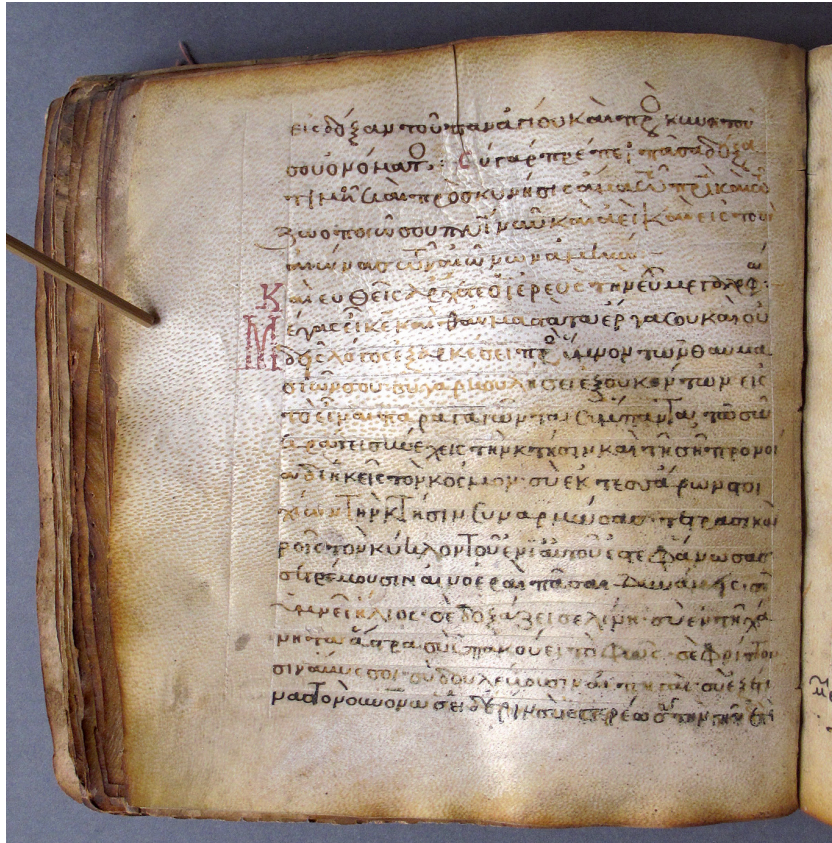 εἰς δόξαν τοῦ παναγίου καὶ πρ κυνητοῦ
σου ὀνόματ: Σὺ γὰρ πρέπει πᾶσα δόξα
τιμὴ καὶ προσκύνησις ἅμα σὺν πρὶ καὶ τῶ
ζωοποιῶ σου πνὶ νῦν καὶ ἀεὶ καὶ εἰς τοὺς
αἰῶνας τῶν αἰώνων ἀμήν
Καὶ εὐθεῖς ἄρχεται ὁ ἱερεὺς τὴν εὐ
Μέγας εἶ κε καὶ θαυμαστὰ τὰ ἔργα σου καὶ οὐ
δεὶς λόγος ἐξαρκέσει πρ ὕμνον τῶν θαυμα
στῶν σου· σὺ γὰρ βουλήσει ἐξουκόντων εἰς
τὸ εἶναι παραγαγὼν τὰ σύμπαντα· τῶ σῶ
κράτει συνέχεις τὴν κτίσιν καὶ τῆ σῆ προνοί
α διηκεῖς τὸν κόσμον· σὺ ἐκ τεσσάρων στοι
χείων τὴν κτίσιν συναρμώσας· τέτρασι και
ροῖς τὸν κύκλον τοῦ ἐνιαυτοῦ ἐστεφάνωσας
σὲ τρέμουσιν αἱ νοεραὶ πᾶσαι δυνάμεις· σὲ
ὑμνεῖ ἥλιος· σὲ δοξάζει σελήνη· σὺ ἐντυγχά
νη τὰ ἄστρα σὺ ὑπακούει τὸ φῶς· σὲ φρίττου
σιν ἄβυσσοι· σὺ δουλεύουσιν αἱ πηγαί· σὺ ἐξέτει
νας τὸν οὐνον ὡσεὶ δέριν σὺ ἐστερέωσ τὴν γῆν ἐπὶ